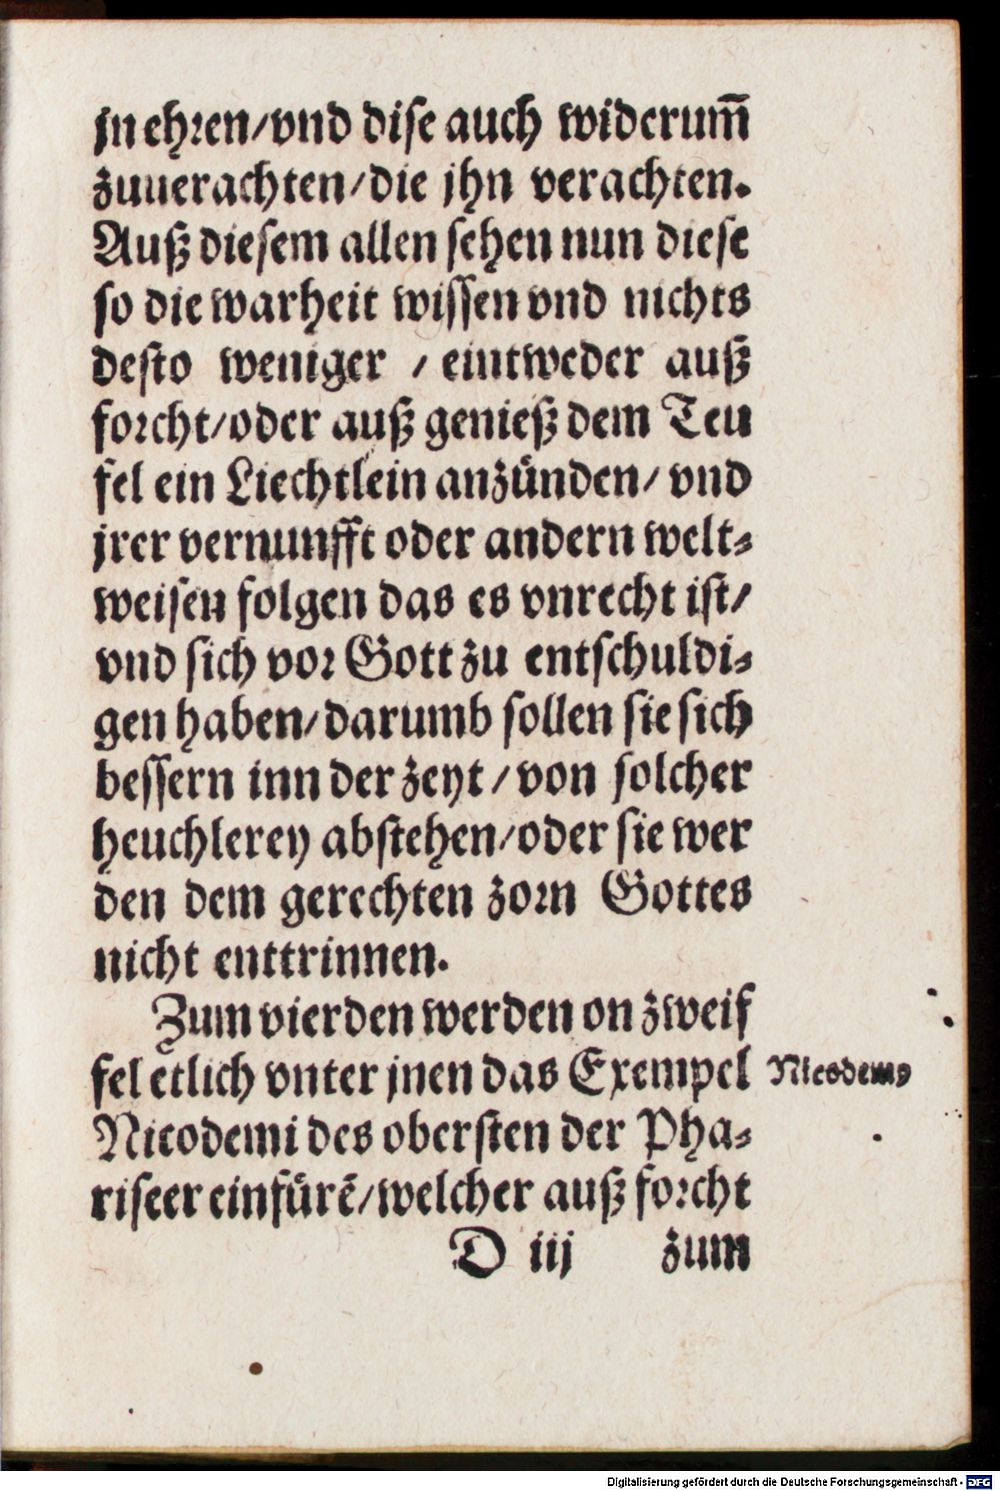 jn ehren/vnd dise auch widerum̃
zuuerachten/die jhn verachten.
Auß diesem allen sehen nun diese
so die warheit wissen vnd nichts
desto weniger / eintweder auß
forcht/oder auß genieß dem Teu
fel ein Liechtlein anzünden/ vnd
jrer vernunfft oder andern welt-
weisen folgen das es vnrecht ist/
vnd sich vor Gott zu entschuldi-
gen haben/darumb sollen sie sich
bessern inn der zeyt/von solcher
heuchlerey abstehen/oder sie wer
den dem gerechten zorn Gottes
nicht enttrinnen.
Zum vierden werden on zweif
fel etlich vnter jnen das Exempel
Nicodemus
Nicodemi des obersten der Pha-
riseer einfürẽ/welcher auß forcht
D iij zum
Digitalisierung gefördert durch die Deutsche Forschungsgemeinschaft - DFG